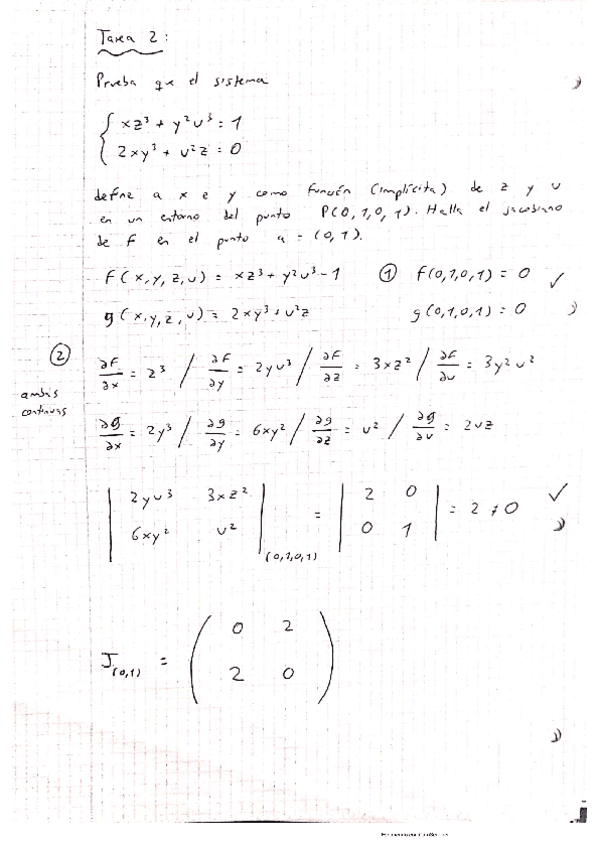 Tarea 2:
Prueba que el sistema
{ xz³ + y²u³ = 1
2xy³ + u²z = 0
define a x e y como función (implícita) de z y u
en un entorno del punto P(0,1,0,1). Halla el jacobiano
de F en el punto a = (0,1).
f(x,y,z,u) = xz³ + y²u³ - 1 ① f(0,1,0,1) = 0 ✓
g(x,y,z,u) = 2xy³ + u²z g(0,1,0,1) = 0
② ∂f/∂x = z³ / ∂f/∂y = 2yu³ / ∂f/∂z = 3xz² / ∂f/∂u = 3y²u²
ambas
continuas
∂g/∂x = 2y³ / ∂g/∂y = 6xy² / ∂g/∂z = u² / ∂g/∂u = 2uz
| 2yu³ 3xz² | = | 2 0 | = 2 ≠ 0 ✓
| 6xy² u² |(0,1,0,1) | 0 1 |
J(0,1) = ( 0 2
2 0 )